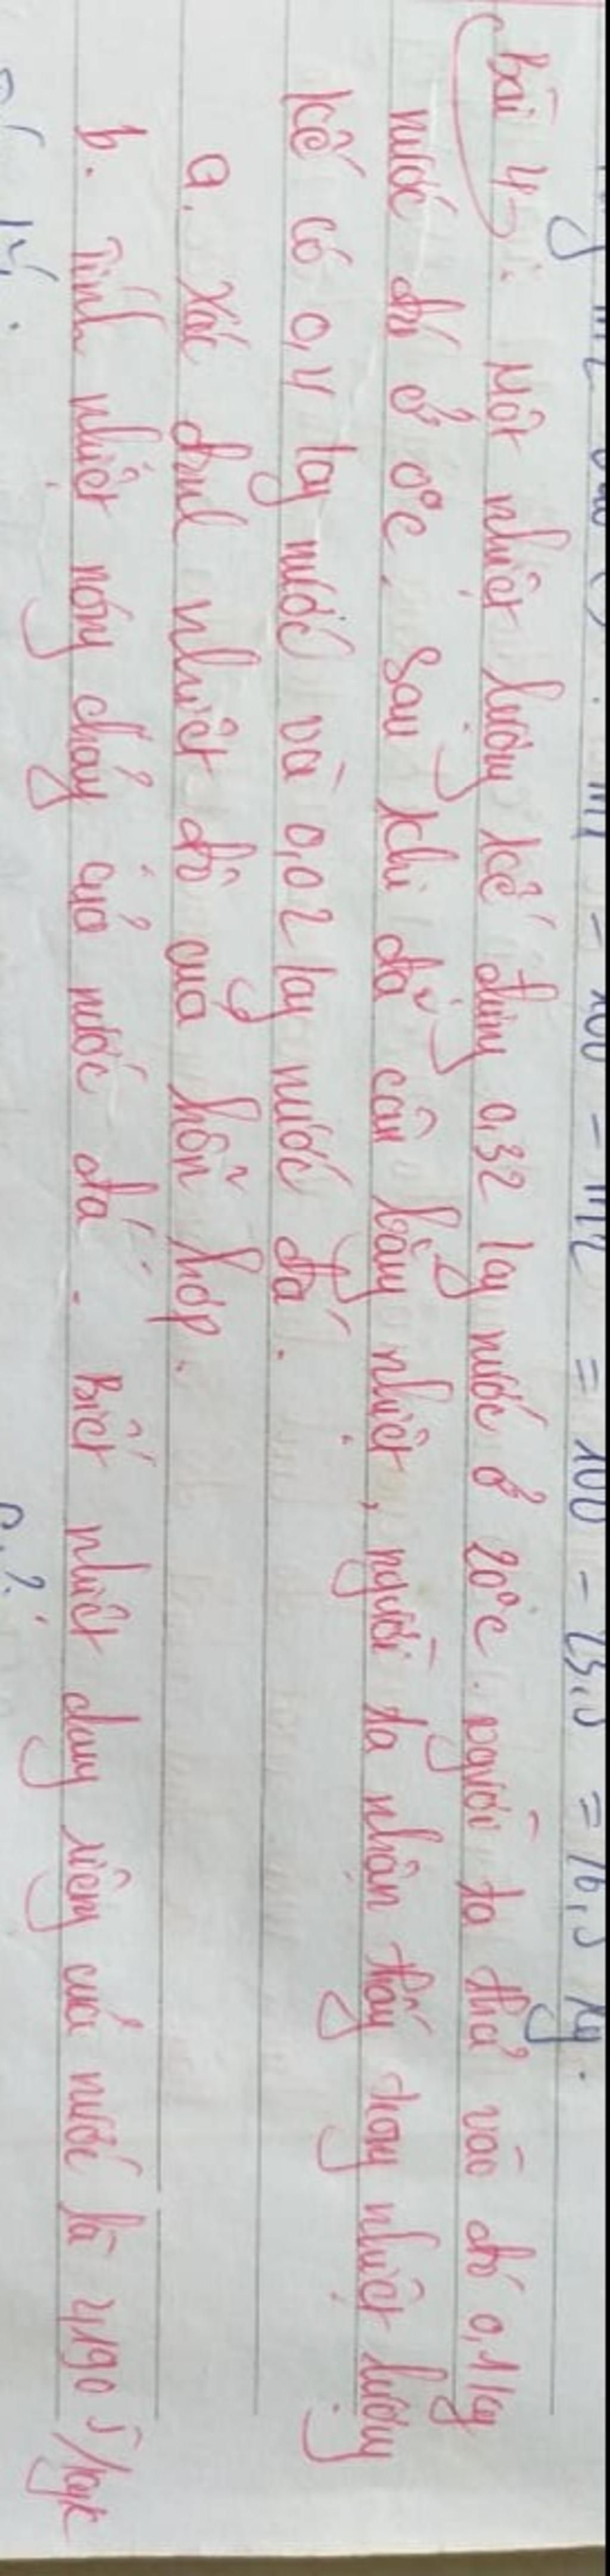 m1 = 100 - m2 = 100 - 23,5 = 76,5 kg.
Bài 4: Một nhiệt lượng kế đựng 0,32 kg nước ở 20°C. Người ta thả vào đó 0,1 kg
nước đá ở 0°C. Sau khi đã cân bằng nhiệt, người ta nhận thấy trong nhiệt lượng
kế có 0,4 kg nước và 0,02 kg nước đá.
a. Xác định nhiệt độ của hỗn hợp.
b. Tính nhiệt nóng chảy của nước đá. Biết nhiệt dung riêng của nước là 4190 J/kgK